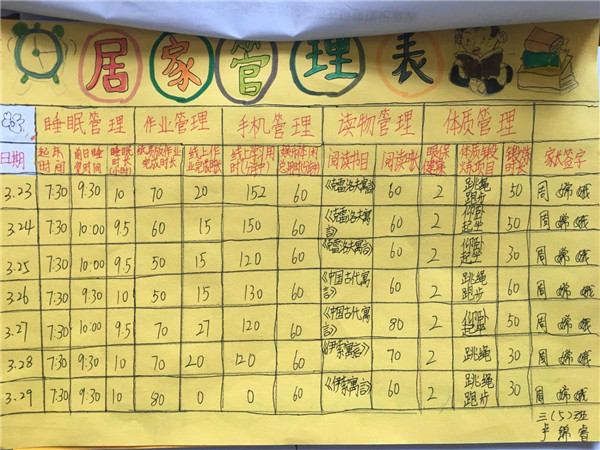 居家管理表
睡眠管理 作业管理 手机管理 读物管理 体质管理
日期 起床时间 前日睡觉时间 睡眠时长 线上作业完成时长 阅读书目 阅读时长 眼保健操 锻炼时长 家长签字
3.23 7:30 9:30 10 70 20 152 60 《克雷洛夫寓言》 60 2 跳绳跑步 50 周嫦娥
3.24 7:30 10:00 9.5 60 15 150 60 《克雷洛夫寓言》 60 2 仰卧起坐 50 周嫦娥
3.25 7:30 10:00 9.5 50 15 120 60 《克雷洛夫寓言》 60 2 仰卧起坐 30 周嫦娥
3.26 7:30 9:30 10 50 15 130 60 《中国古代寓言》 60 2 跳绳跑步 60 周嫦娥
3.27 7:30 10:00 9.5 70 27 120 60 《中国古代寓言》 80 2 仰卧起坐 50 周嫦娥
3.28 7:30 9:30 10 70 20 120 60 《伊索寓言》 70 2 跳绳 30 周嫦娥
3.29 7:30 9:30 10 80 0 0 60 《伊索寓言》 60 2 跳绳跑步 30 周嫦娥
三(5)班